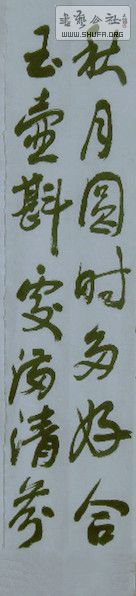 书艺公社
WWW.SHUFA.ORG
秋月圆时多好合
玉壶斟处满清芬